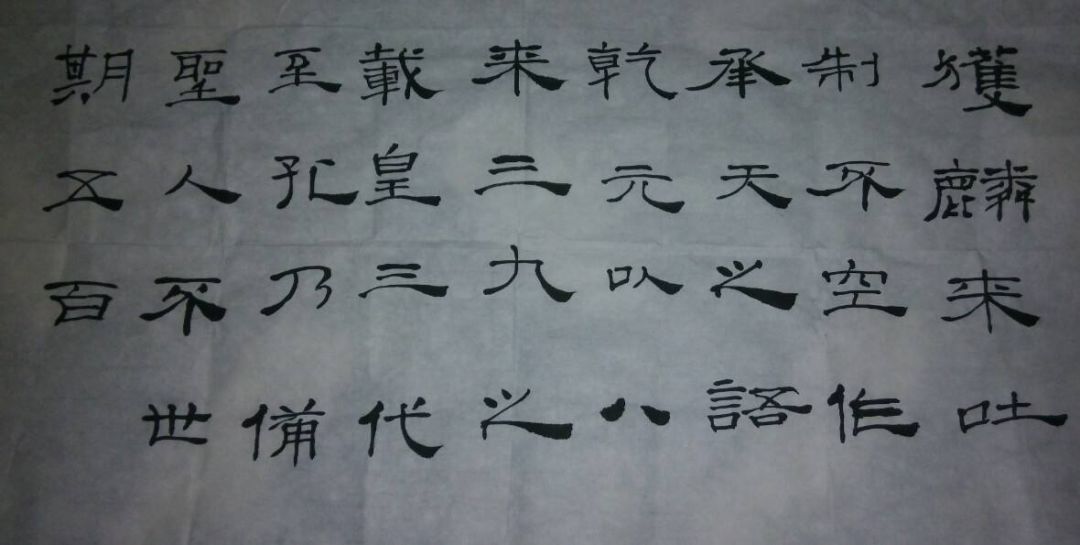 獲麟来吐
制不空作
承天之語
乾元以八
来三九之
載皇三代
至孔乃備
聖人不世
期五百